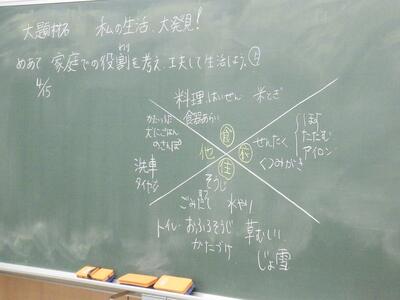 大題材名 私の生活、大発見!
めあて 家庭での役割を考え、工夫して生活しよう。
わり
4/15
料理 はいぜん 米とぎ
食器あらい
犬にごはん
のさんぽ
食
衣
住
他
せんたく
ほす
たたむ
アイロン
くつみがき
洗車
タイヤ
そうじ
ごみだし
水やり
トイレ・おふろそうじ
草むしり
かたづけ
じょ雪